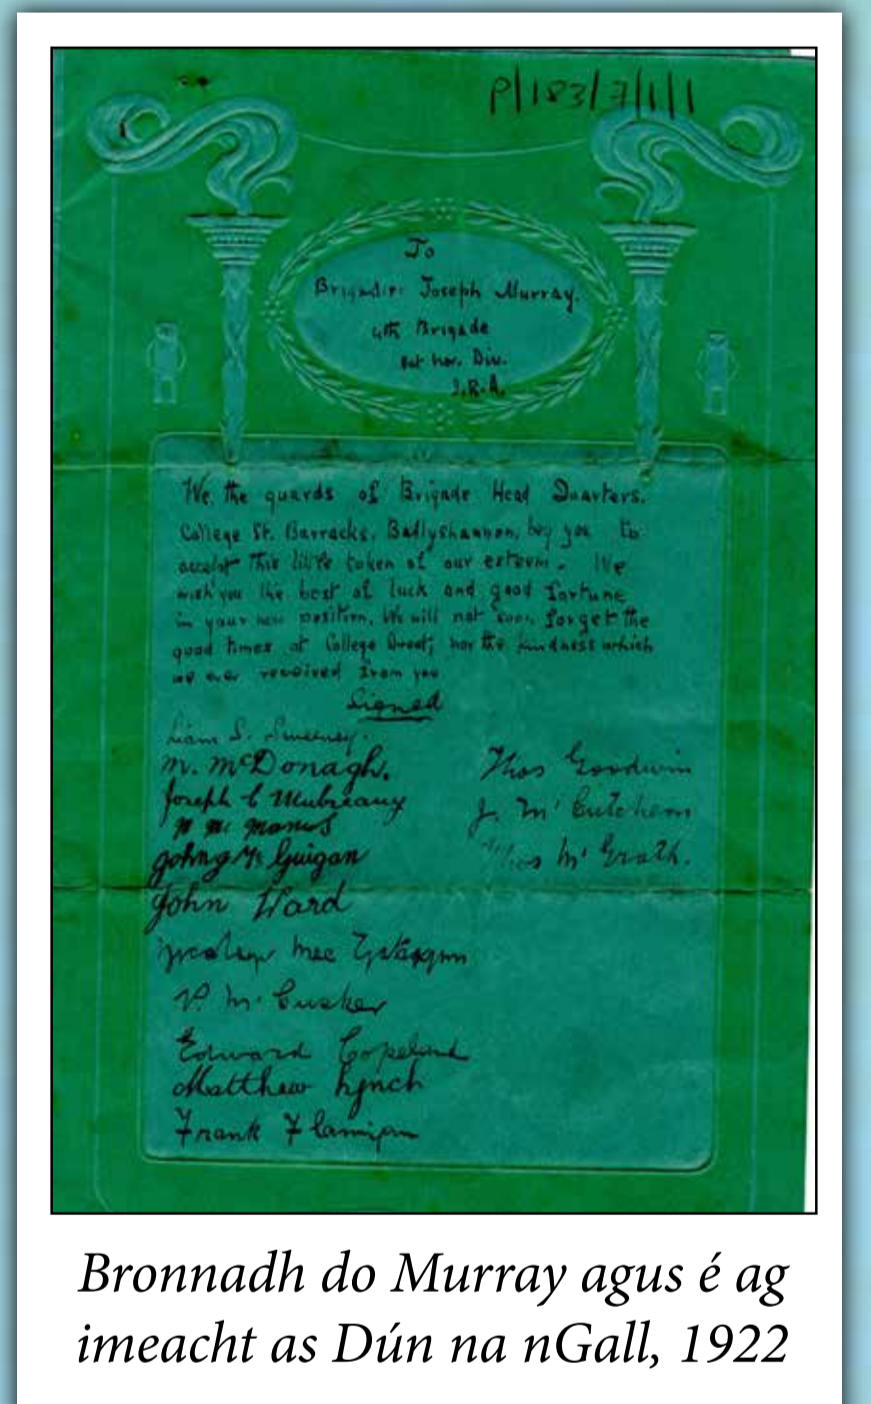 P/183/7/1/1
To
Brigadier Joseph Murray.
4th Brigade
1st Nor. Div.
I.R.A.
We, the guards of Brigade Head Quarters,
College St. Barracks, Ballyshannon, beg you to
accept this little token of our esteem. We
wish you the best of luck and good fortune
in your new position. We will not soon forget the
good times at College Street; nor the kindness which
we ever received from you
Signed
Liam S. Sweeney.
M. McDonagh.
Joseph C
John Mc Guigan
John Ward
Mac
P. Mc Cusker
Edward Copeland
Matthew Lynch
Frank Flanigan
Thos Goodwin
J. Mc Cutcheon
Thos Mc Grath.
Bronnadh do Murray agus é ag
imeacht as Dún na nGall, 1922